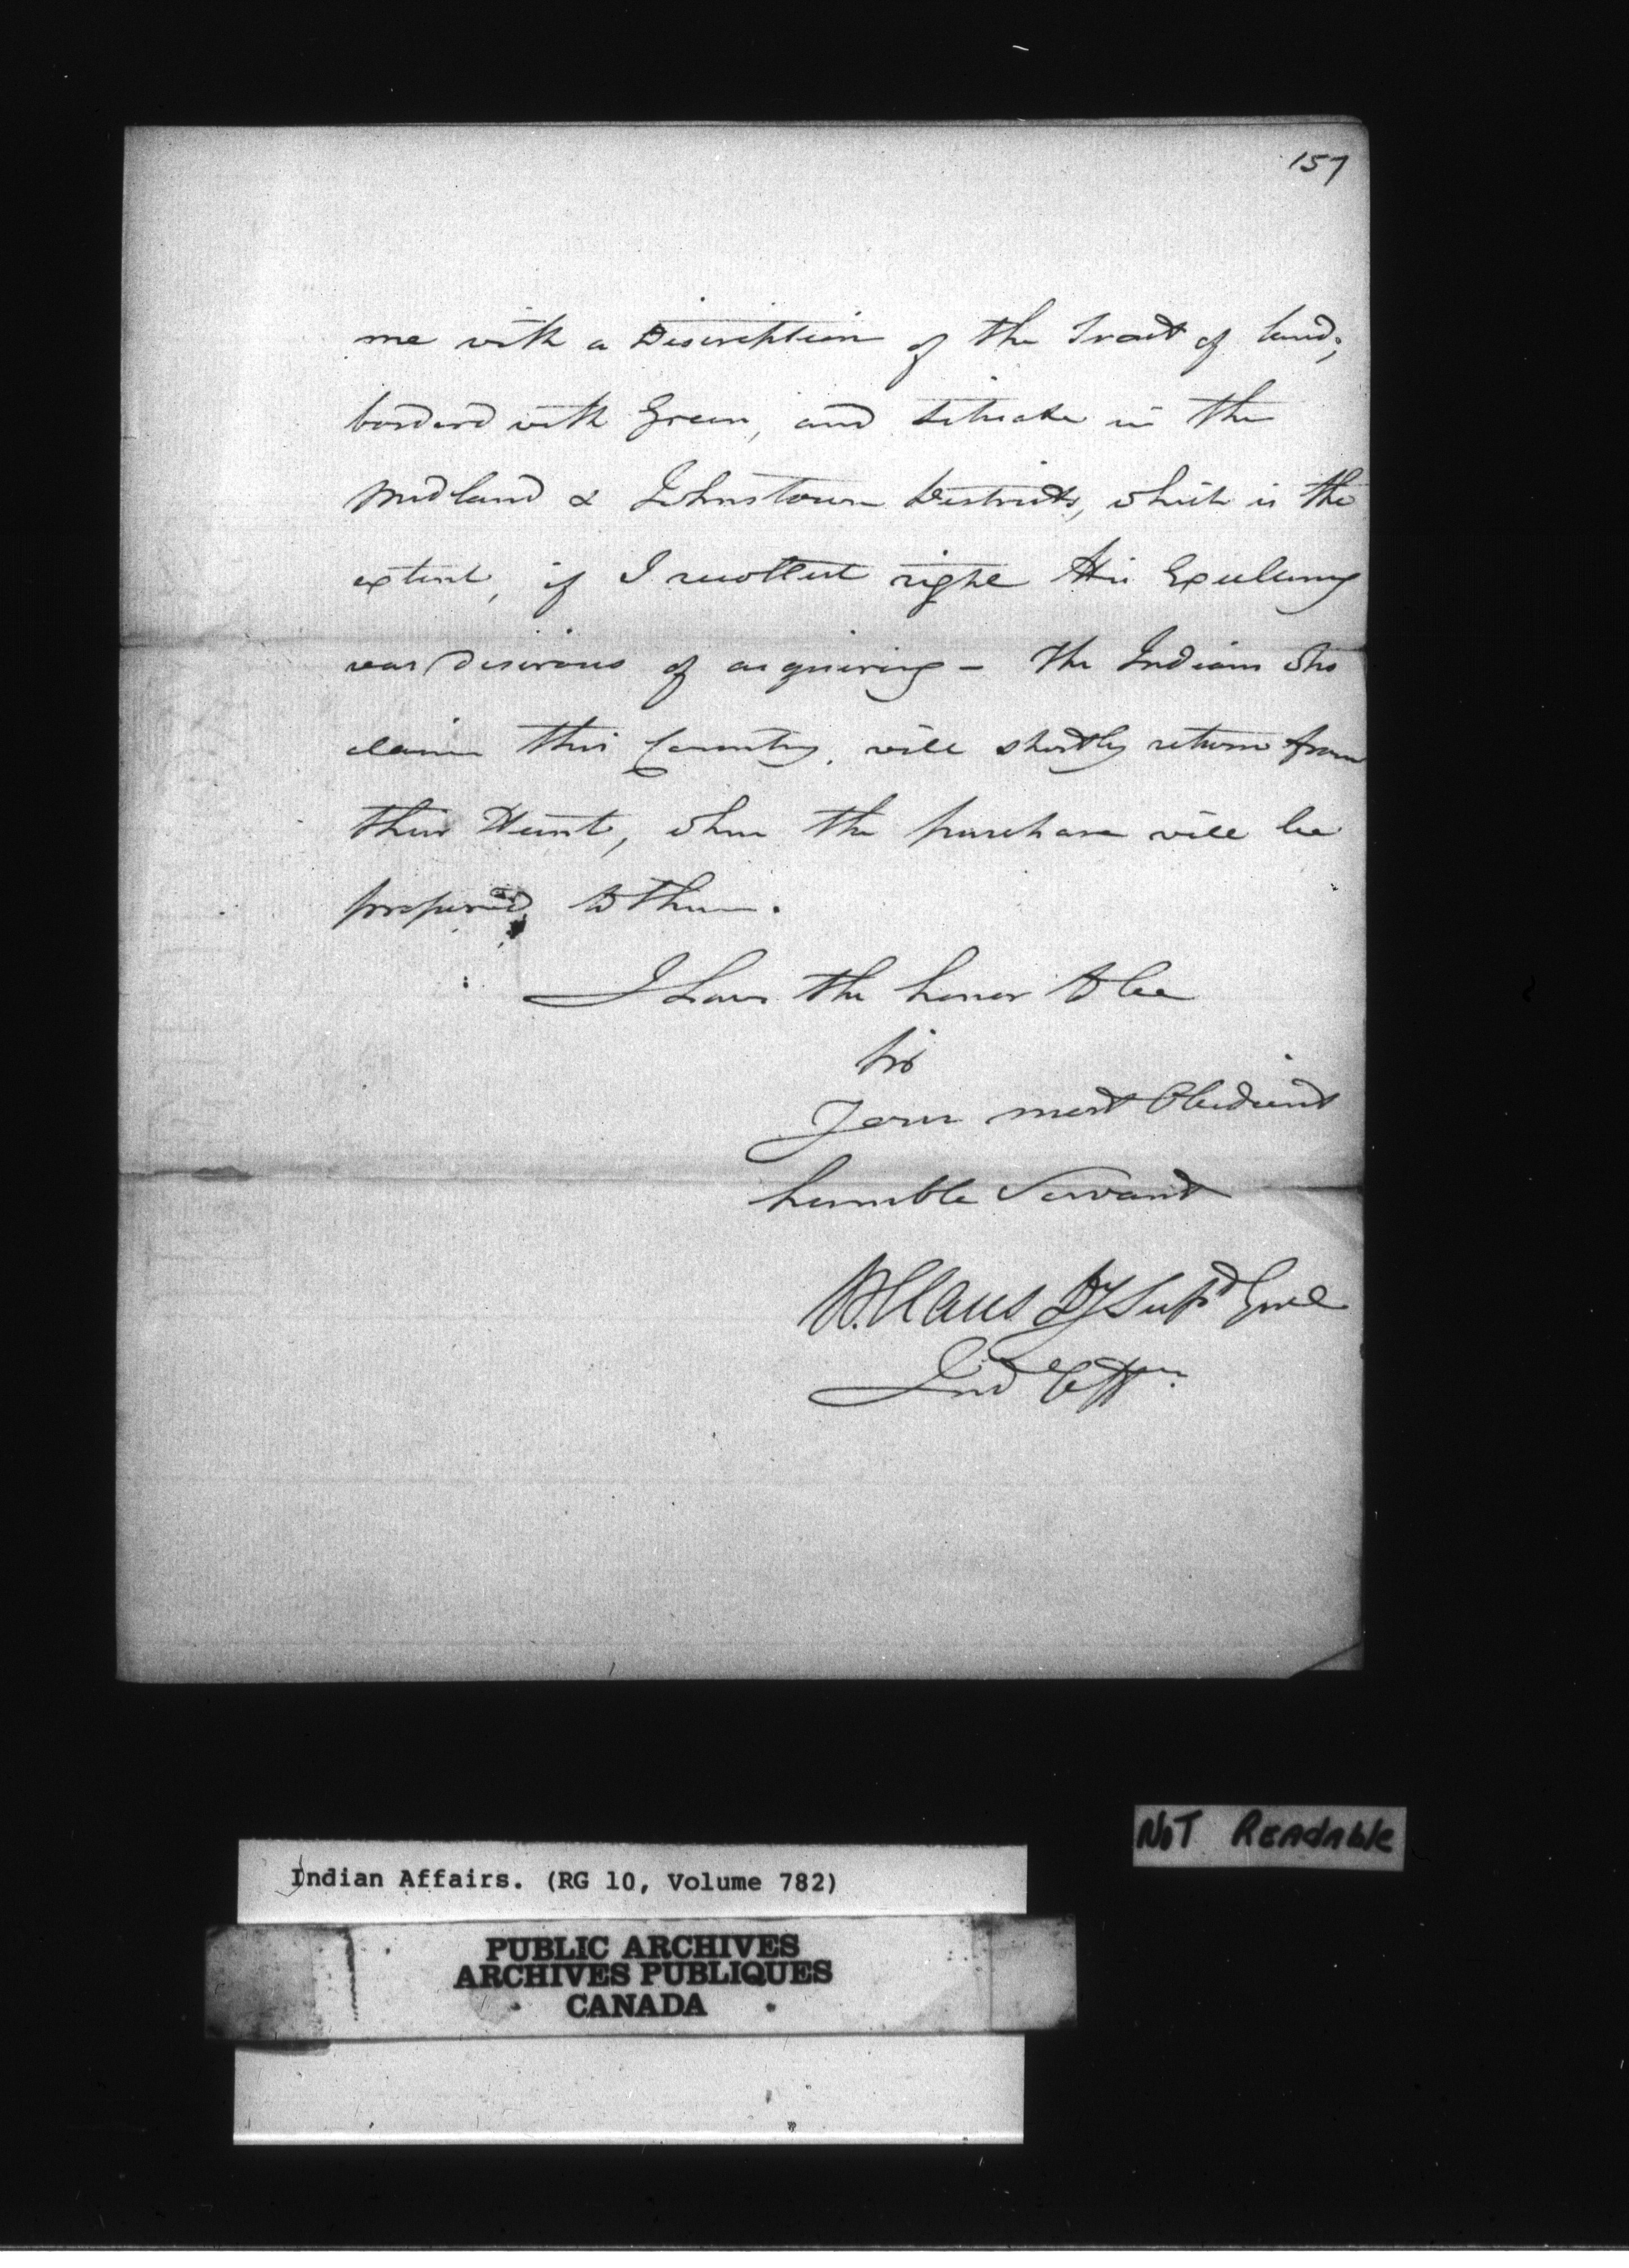 157
me with a Discription of the Tract of land,
borderd with Green, and situate in the
Midland & Johnstown Districts, which is the
extent, if I recollect right His Excellency
was desirous of acquiring - The Indians who
claim this Country, will shortly return from
their Hunt, when the purchase will be
proposed to them.
I have the honor to be
Sir
Your most Obedient
humble Servant
W. Claus Dy Supt Genl
Ind Affrs.
NOT READABLE
Indian Affairs. (RG 10, Volume 782)
PUBLIC ARCHIVES
ARCHIVES PUBLIQUES
CANADA